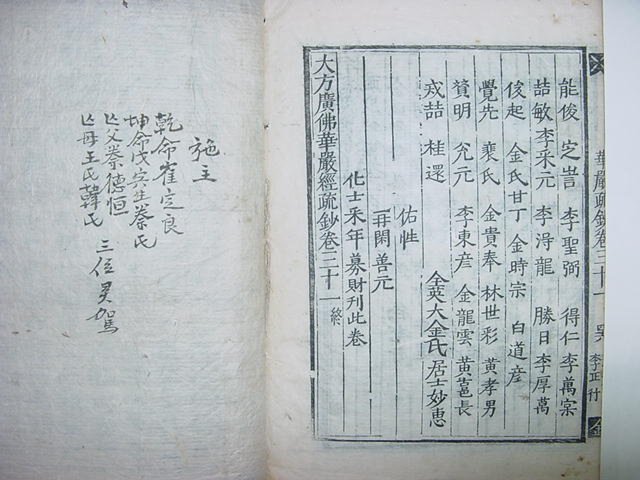 能俊 定訔 李聖弼 得仁 李萬宗
喆敏 李采元 李淂龍 勝日 李厚萬
俊起 金氏甘丁 金時宗 白道彦
覺先 裴氏 金貴奉 林世彩 黃孝男
賛明 兖元 李東彦 金龍雲 黃萻長
戎喆 桂還 仝英大金氏 居士妙恵
佑性
再閑 善元
化士釆年募財刊此卷
大方廣佛華嚴經疏鈔卷三十一 終
華嚴疏鈔卷三十一 李正行 金
施主
乾命崔定良
坤命戊寅生蔡氏
亡父蔡德恒
亡母王氏韓氏
三位灵駕